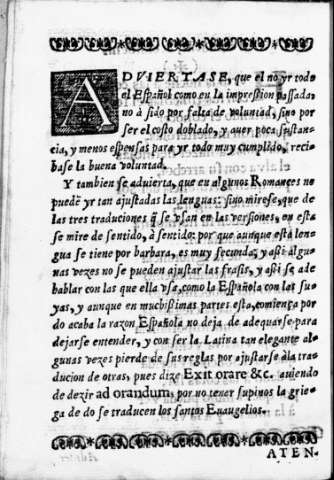 ADVIERTASE, que el no yr todo
el Español como en la impression passada,
no à sido por falta de voluntad, sino por
ser el costo doblado, y auer poca sustan-
cia, y menos espensas para yr todo muy cumplido, reci-
base la buena voluntad.
Y tambien se aduierta, que en algunos Romances no
puedē yr tan ajustadas las lenguas: sino mirese, que de
las tres traduciones q̄ se vsan en las versiones, en esta
se mire de sentido, à sentido: por que aunque esta len-
gua se tiene por barbara, es muy fecunda, y assi algu-
nas vezes no se pueden ajustar las frasis, y assi se ade
hablar con las que ella vsa, como la Española con las su-
yas, y aunque en muchissimas partes esta, comiença por
do acaba la razon Española no deja de adequarse para
dejarse entender, y con ser la Latina tan elegante al-
gunas vezes pierde de sus reglas por ajustarse à la tra-
ducion de otras, pues dize Exit orare &c. auiendo
de dezir ad orandum, por no tener supinos la grie-
ga de do se traducen los santos Euangelios.
ATEN.